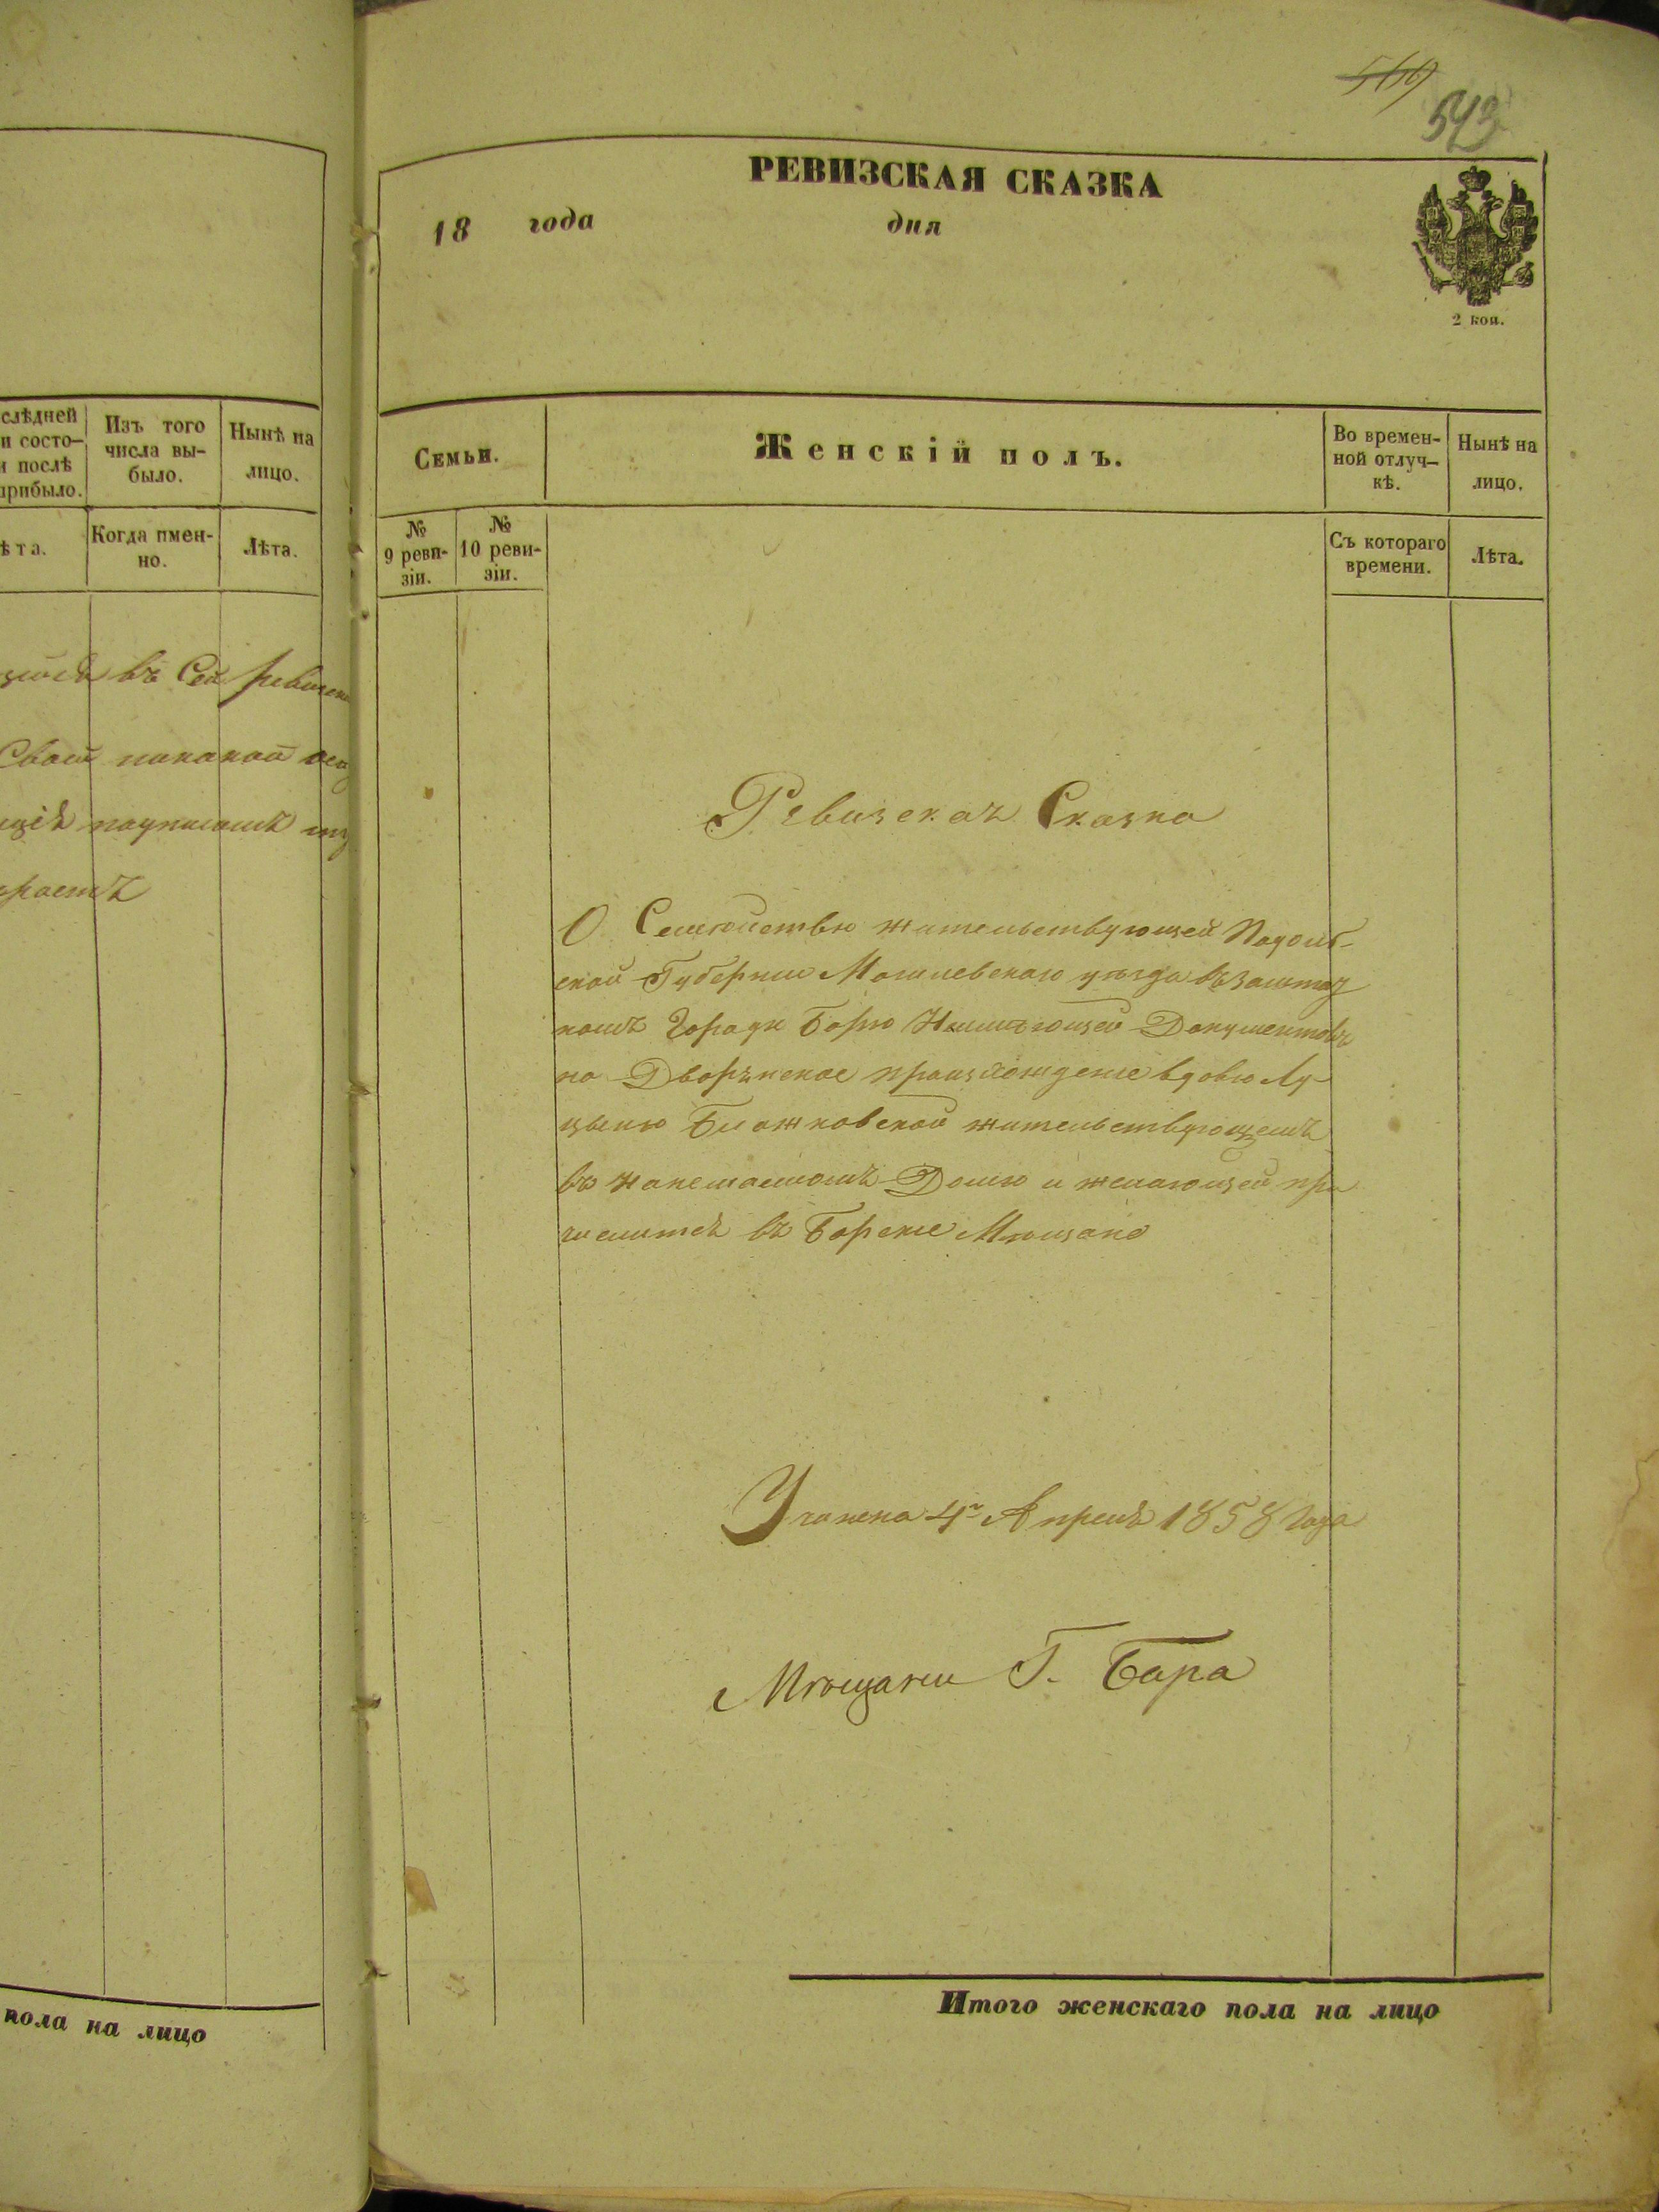 слѣдней
и состо-
и послѣ
прибыло.
Изъ того
числа вы-
было.
Нынѣ на
лицо.
ѣта.
Когда имен-
но.
Лѣта.
въ Сей
Свой никакой
пола на лицо
543
РЕВИЗСКАЯ СКАЗКА
18 года дня
2 коп.
Семьи.
Женскій полъ.
Во времен-
ной отлуч-
кѣ.
Нынѣ на
лицо.
№
9 реви-
зіи.
№
10 реви-
зіи.
Съ котораго
времени.
Лѣта.
Ревизская Сказка
О Семействѣ жительствующей Подоль-
ской Губерніи Могилевскаго уѣзда въ Заштат
номъ Городѣ Барѣ Неимѣющей Документовъ
на Дворянское происхожденіе вдовѣ Лу
цыи Блажковской жительствующемъ
въ Домѣ и желающей при
числится въ Барскіе Мѣщане
Учинена 4го Апреля 1858 Года
Мѣщани Г. Бара
Итого женскаго пола на лицо